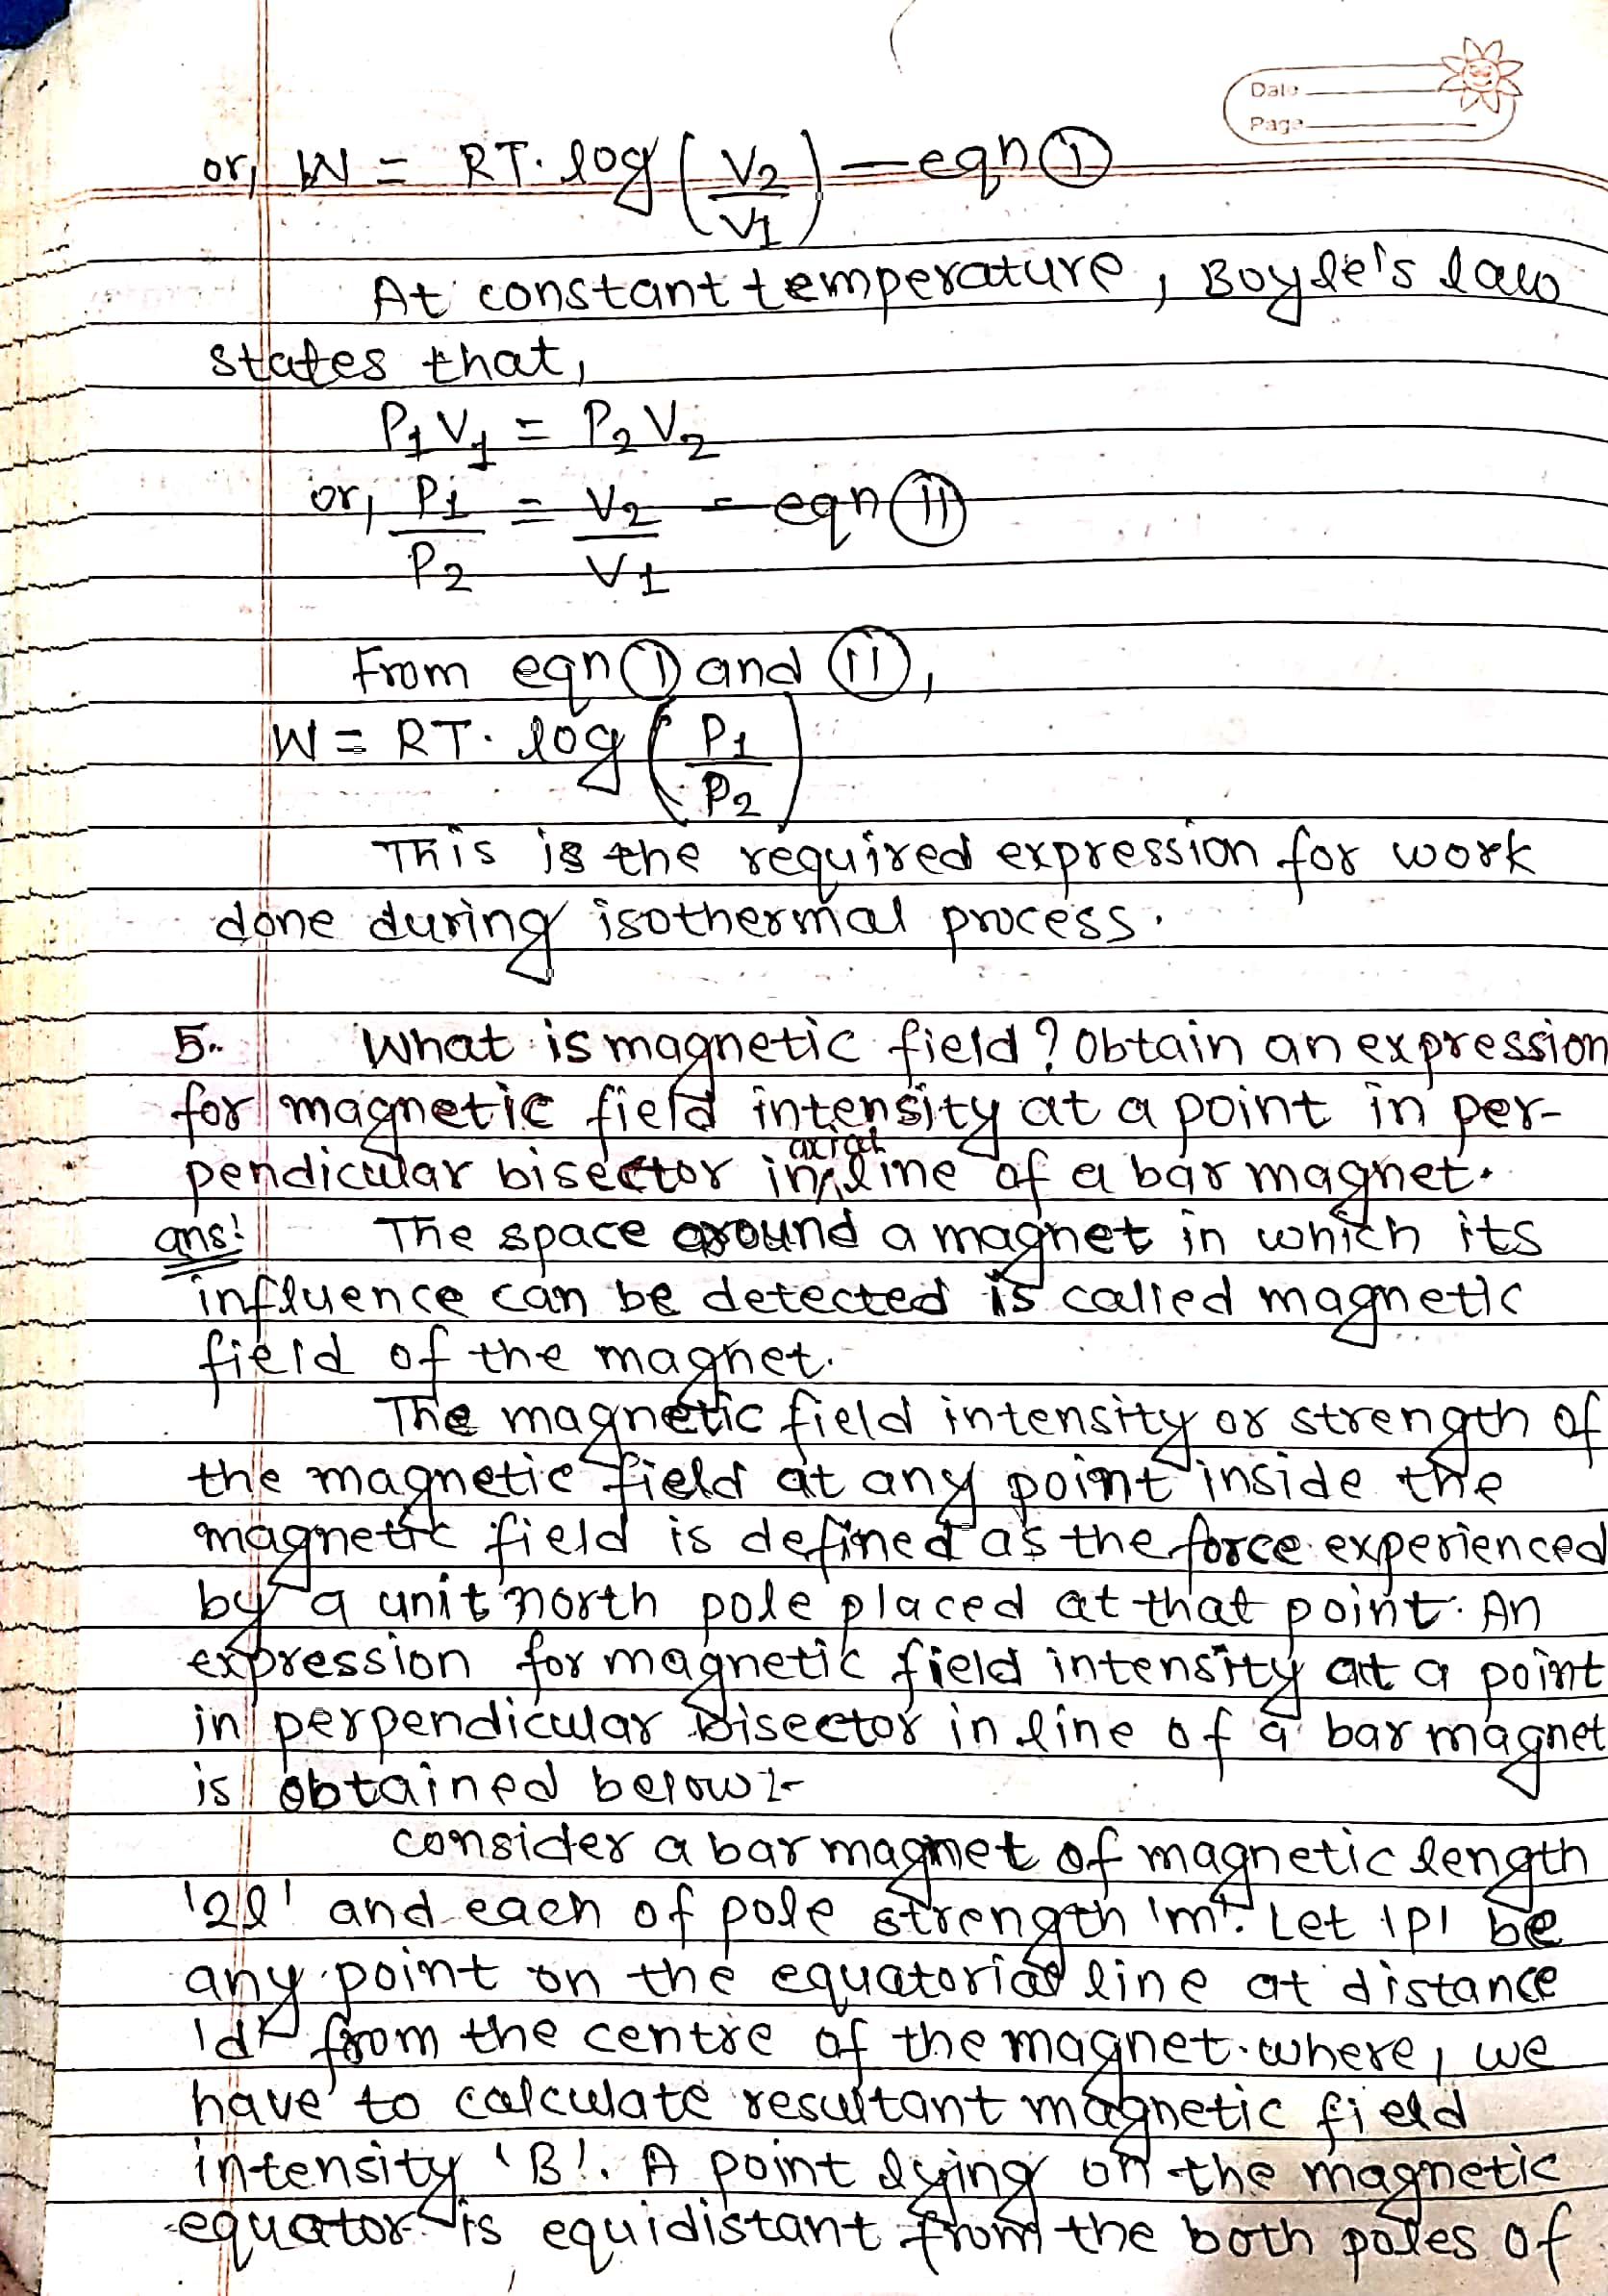 Date
Page
or, W = RT. log (V2/V1) — eqn (i)
At constant temperature, Boyle's law
states that,
P1 V1 = P2 V2
or, P1/P2 = V2/V1 — eqn (ii)
From eqn (i) and (ii),
W = RT. log (P1/P2)
This is the required expression for work
done during isothermal process.
5. What is magnetic field? Obtain an expression
for magnetic field intensity at a point in per-
pendicular bisector in axial line of a bar magnet.
ans: The space around a magnet in which its
influence can be detected is called magnetic
field of the magnet.
The magnetic field intensity or strength of
the magnetic field at any point inside the
magnetic field is defined as the force experienced
by a unit north pole placed at that point. An
expression for magnetic field intensity at a point
in perpendicular bisector in line of a bar magnet
is obtained below:-
consider a bar magnet of magnetic length
'2l' and each of pole strength 'm'. Let 'P' be
any point on the equatorial line at distance
'd' from the centre of the magnet. where, we
have to calculate resultant magnetic field
intensity 'B'. A point lying on the magnetic
equator is equidistant from the both poles of